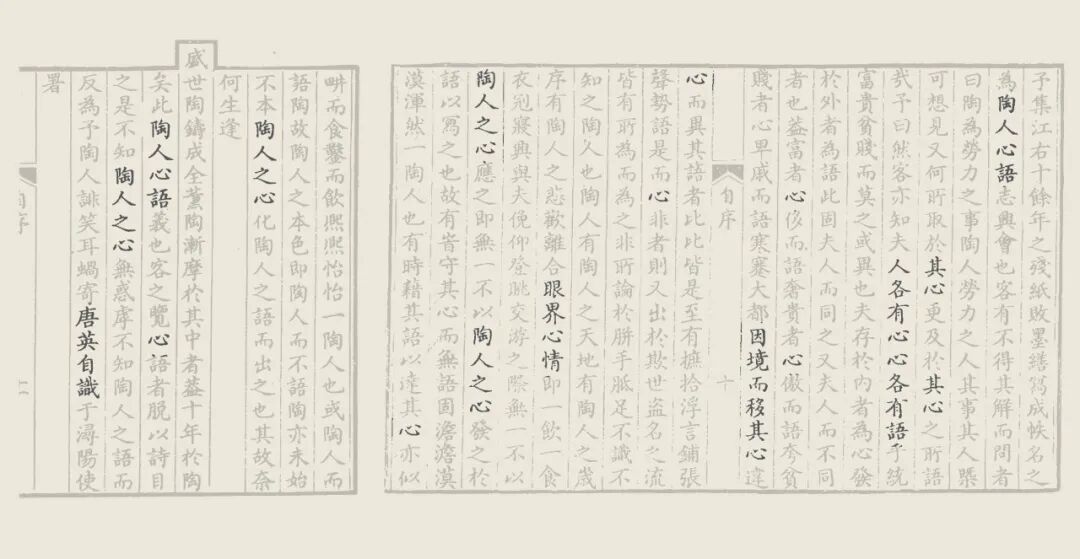 予集江右十餘年之殘紙敗墨繕寫成帙名之
為陶人心語志興會也客有不得其解而問者
曰陶為勞力之事陶人勞力之人其事其人槩
可想見又何所取於其心更及於其心之所語
哉予曰然客亦知夫人各有心心各有語乎統
富貴貧賤而莫之或異也夫存於內者為心發
於外者為語此固夫人而同之又夫人而不同
者也益富者心侈而語奢貴者心傲而語夸貧
賤者心卑戚而語寒蹇大都因境而移其心違
自序
十
心而異其語者比比皆是至有摭拾浮言鋪張
聲勢語是而心非者則又出於欺世盜名之流
皆有所為而為之非所論於胼手胝足不識不
知之陶人也陶人有陶人之天地有陶人之歲
序有陶人之悲歡離合眼界心情即一飲一食
衣冠寢興與夫俛仰登眺交游之際無一不以
陶人之心應之即無一不以陶人之心發之於
語以寫之也故有時守其心而無語固澹澹漠
漠渾然一陶人也有時藉其語以達其心亦似
畊而食鑿而飲熙熙怡怡一陶人也或陶人而
語陶故陶人之本色即陶人而不語陶亦未始
不本陶人之心化陶人之語而出之也其故奈
何生逢
盛世陶鑄成全薰陶漸摩於其中者葢十年於陶
矣此陶人心語義也客之覽心語者脫以詩目
之是不知陶人之心無惑虖不知陶人之語而
反為予陶人誹笑耳蝸寄唐英自識于潯陽使
署
自序